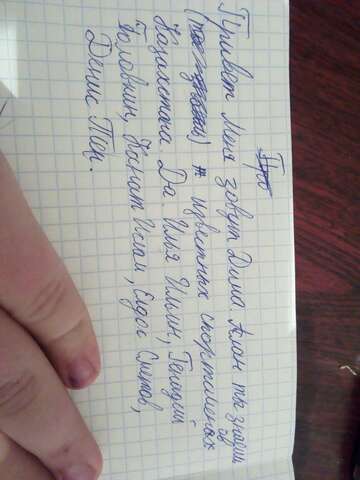 Про
Привет Меня зовут Дима. Алан ты знаешь
об
известных спортсменах
Казахстана Да. Илья Ильин, Генадий
Головкин, Канат Ислам, Елдос Сметов,
Денис Тен.